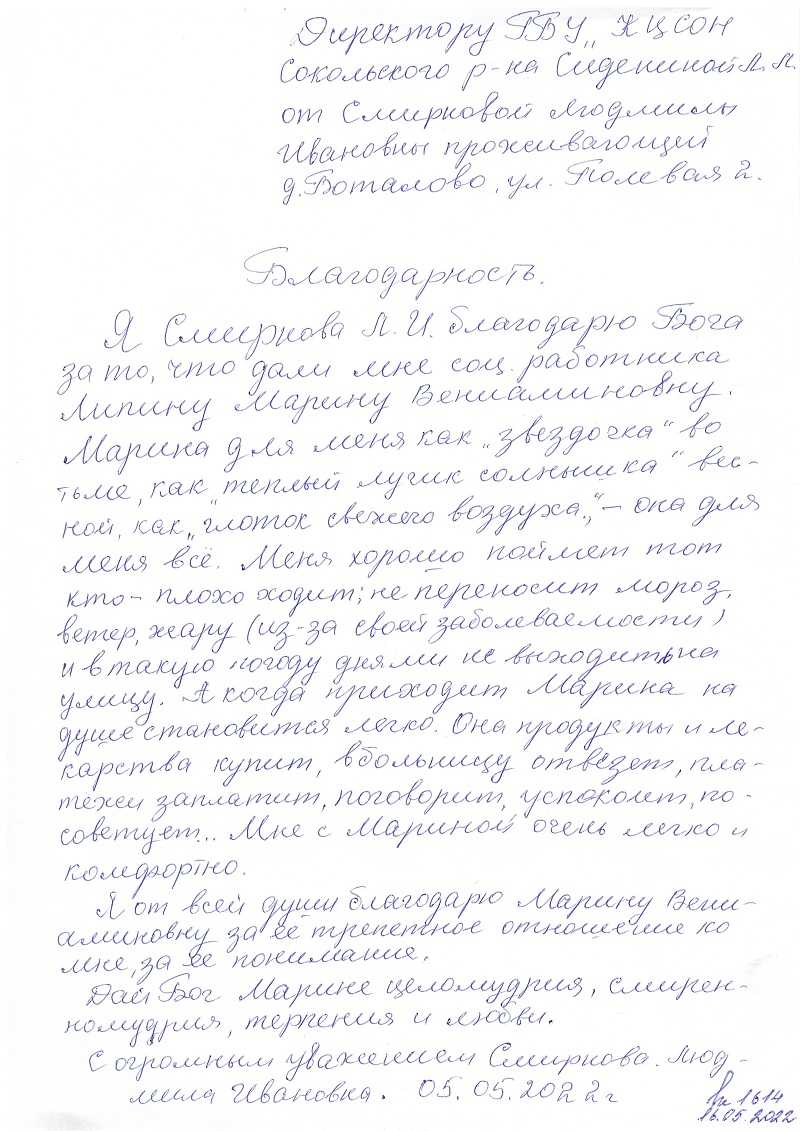 Директору ГБУ „КЦСОН
Сокольского р-на Сидениной Л.П.
от Смирновой Людмилы
Ивановны проживающий
д. Боталово, ул. Полевая 2.
Благодарность.
Я Смиркова Л.И. благодарю Бога
за то, что дали мне соц. работника
Липину Марину Вениаминовну.
Марина для меня как „звездочка“ во
тьме, как „теплый лучик солнышка“ вес-
ной, как „глоток свежего воздуха.“ – она для
меня всё. Меня хорошо поймет тот
кто – плохо ходит; не переносит мороз,
ветер, жару (из-за своей заболеваемости)
и в такую погоду днями не выходить на
улицу. А когда приходит Марина на
душе становится легко. Она продукты и ле-
карства купит, в больницу отвезет, пла-
тежи заплатит, поговорит, успокоит, по-
советует... Мне с Мариной очень легко и
комфортно.
Я от всей души благодарю Марину Вени-
аминовну за её трепетное отношение ко
мне, за её понимание.
Дай Бог Марине целомудрия, смирен-
номудрия, терпения и любви.
С огромным уважением Смирнова. Люд-
мила Ивановна. 05.05.2022г
вх 1614
16.05.2022